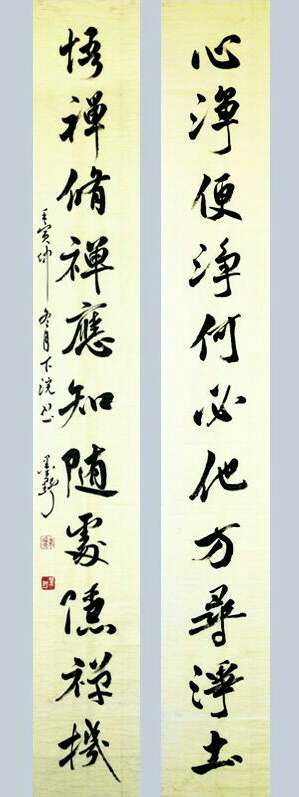 心淨便淨何必他方尋淨土
悟禪脩禪應知随處隱禪機
壬寅仲冬月下浣